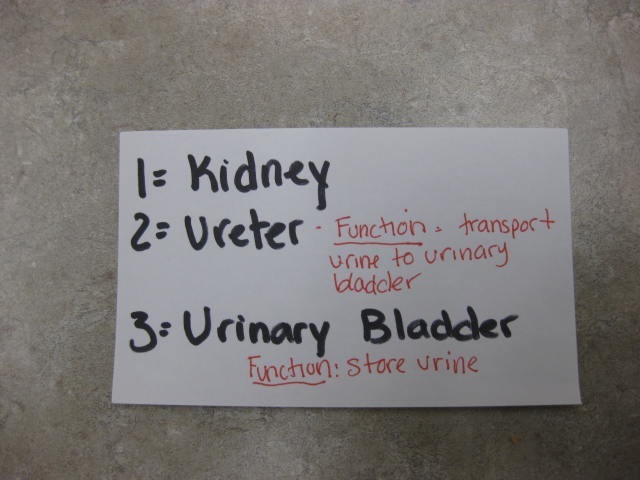 1= Kidney
2= Ureter - Function = transport
urine to urinary
bladder
3= Urinary Bladder
Function: store urine